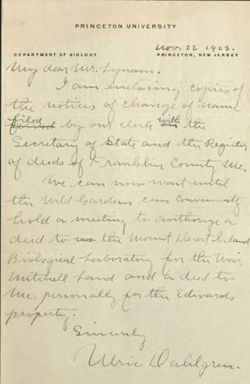 PRINCETON UNIVERSITY
DEPARTMENT OF BIOLOGY
PRINCETON, NEW JERSEY
Nov. 22 1923.
My dear Mr. Lynam:
I am enclosing copies of
the notices of change of name
filed by our clerk with the
Secretary of State and the Register
of deeds of Franklin County Me.
We can now wait until
the Wild Gardens can conveniently
hold a meeting to authorize a
deed to the Mount Desert Island
Biological Laboratory for the Weir
Mitchell Land and a deed to
me personally for the Edwards
property.
Sincerely
Ulric Dahlgren.